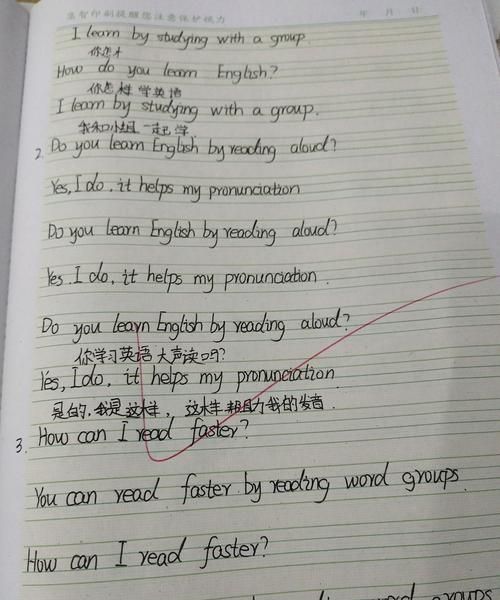 集智印刷提醒您注意保护视力 年 月 日
I learn by studying with a group.
你怎才
How do you learn English?
你怎样学英语
I learn by studying with a group.
我和小组一起学.
2. Do you learn English by reading aloud?
Yes, I do, it helps my pronunciation
Do you learn English by reading aloud?
Yes. I do, it helps my pronunciation.
Do you learn English by reading aloud?
你学习英语大声读吗?
Yes, I do, it helps my pronunciation.
是的.我是这样,这样帮助我的发音.
3. How can I read faster?
You can read faster by reading word groups.
How can I read faster?
word groups